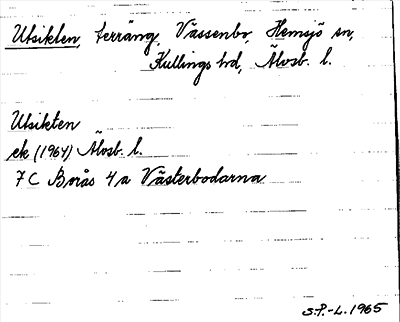 Utsikten, terräng, Vässenbo, Hemsjö sn,
Kullings hd, Älvsb. l.
Utsikten
ek (1964) Älvsb. l.
7 C Borås 4 a Västerbodarna
S.P.-L. 1965